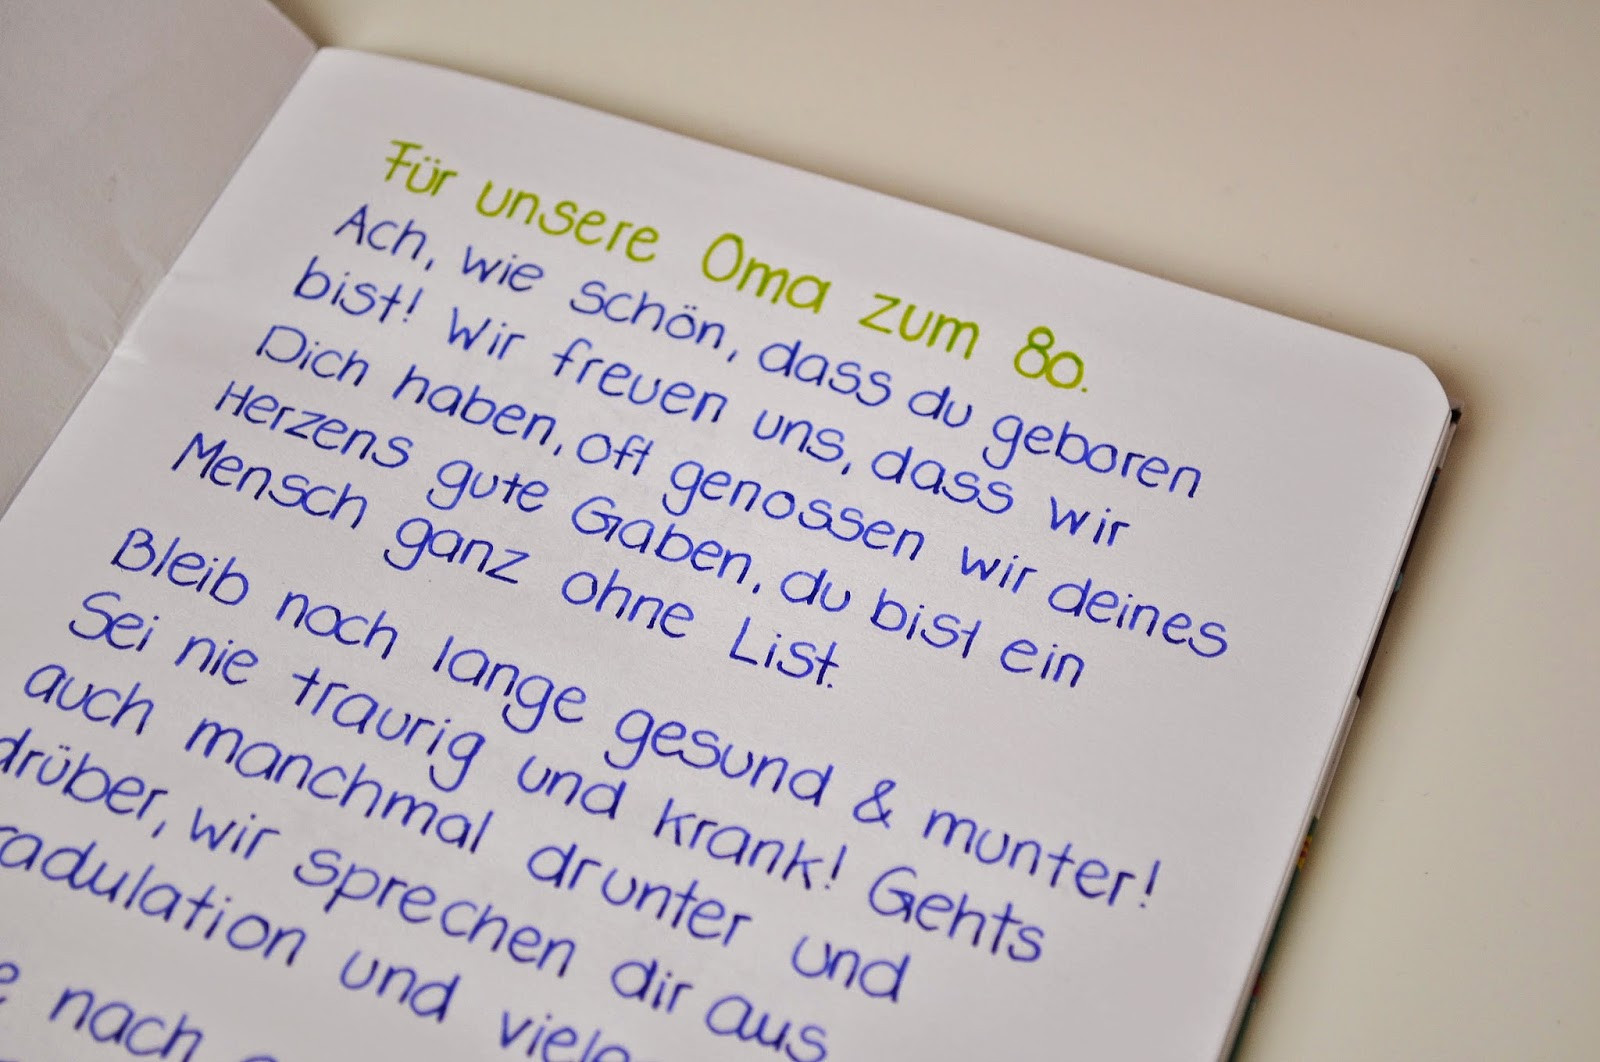 Für unsere Oma zum 80.
Ach, wie schön, dass du geboren
bist! Wir freuen uns, dass wir
Dich haben, oft genossen wir deines
Herzens gute Gaben, du bist ein
Mensch ganz ohne List.
Bleib noch lange gesund & munter!
Sei nie traurig und krank! Gehts
auch manchmal drunter und
drüber, wir sprechen dir aus
radulation und viele
nach